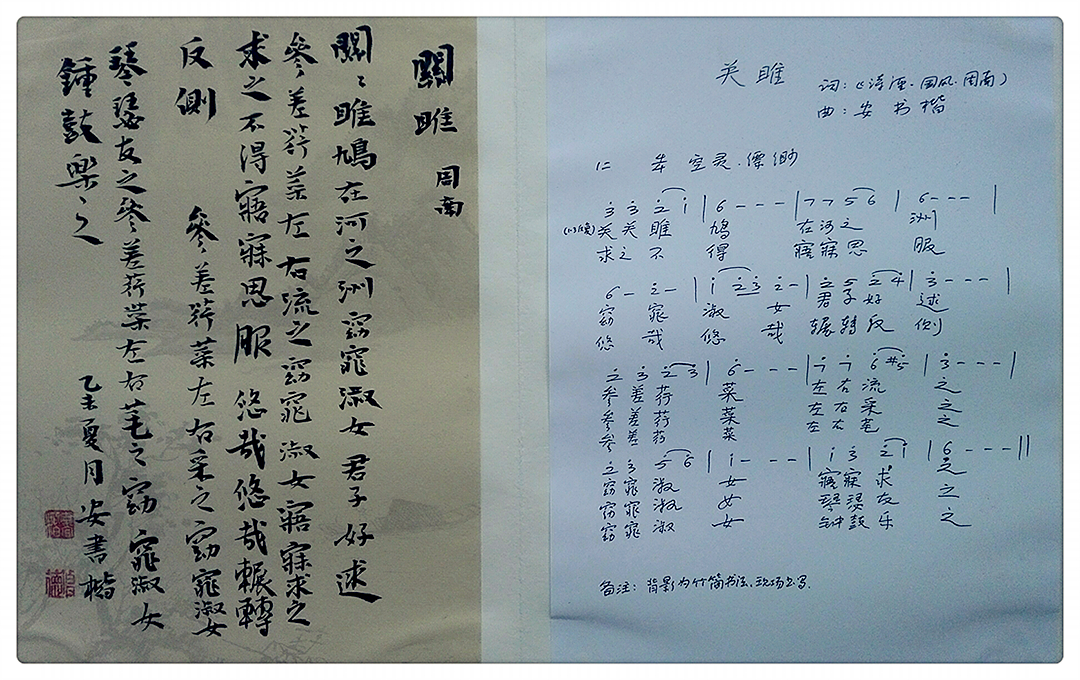 關雎
周南
關〻雎鳩在河之洲窈窕淑女君子好逑
參差荇菜左右流之窈窕淑女寤寐求之
求之不得寤寐思服悠哉悠哉輾轉
反側
參差荇菜左右采之窈窕淑女
琴瑟友之參差荇菜左右芼之窈窕淑女
鍾鼓樂〻之
乙未夏月安書楷
关雎
词：《诗经·国风·周南》
曲：安书楷
空灵·缥缈
3 3 2 1 | 6 - - - | 7 7 5 6 | 6 - - - |
关关雎 鸠 在河之 洲
求之不 得 寤寐思 服
6 - 2 - | 1 2 3 2 - | 2 5 2 4 | 3 - - - |
窈 窕 淑 女 君子好 逑
悠 哉 悠 哉 辗转反 侧
2 3 2 3 | 6 - - - | 7 7 6 #5 | 3 - - - |
参差荇 菜 左右流 之
参差荇 菜 左右采 之
参差荇 菜 左右芼 之
2 3 5 6 | 1 - - - | 1 3 2 1 | 6 - - - ||
窈窕淑 女 寤寐求 之
窈窕淑 女 琴瑟友 之
窈窕淑 女 钟鼓乐 之
备注：背影为竹简书法，现场书写.